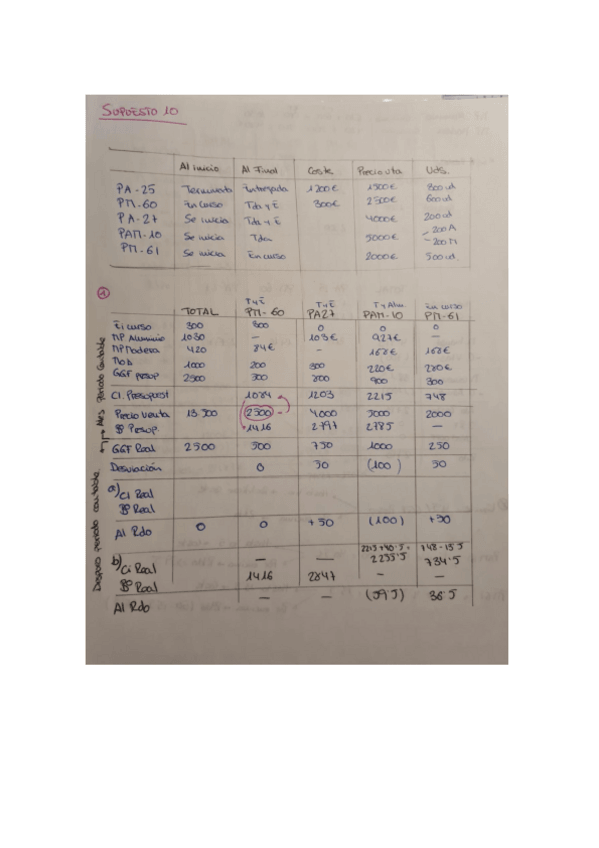 SUPUESTO 10
Al inicio Al Final Coste Precio vta Uds.
PA-25 Terminado Entregada 1200€ 1500€ 800 ud
PM-60 En curso Tda y E 300€ 2500€ 600 ud
PA-27 Se inicia Tda y E 4000€ 200 ud
PAM-10 Se inicia Tda 5000€ -200 A
-200 M
PM-61 Se inicia En curso 2000€ 500 ud.
1
TyE TyE Ty Alm. En curso
TOTAL PM-60 PA27 PAM-10 PM-61
En curso 300 300 0 0 0
MP Aluminio 1030 - 103€ 927€ -
MP Madera 420 84€ - 168€ 168€
Mob 1000 200 300 220€ 280€
GGF presup 2500 500 800 900 300
CI. Presupuest 1084 1203 2215 748
Precio Venta 13.500 2500 4000 5000 2000
Bº Presup. 1416 2797 2785 -
GGF Real 2500 500 750 1000 250
Desviación 0 50 (100) 50
a) Ci Real
Bº Real
Al Rdo 0 0 +50 (100) +50
b) Ci Real - - 2215+40'5= 2255'5 748-13'5 734'5
Bº Real 1416 2847 - -
Al Rdo - - (59'5) 36'5
Mes Periodo Contable
Despues periodo contable